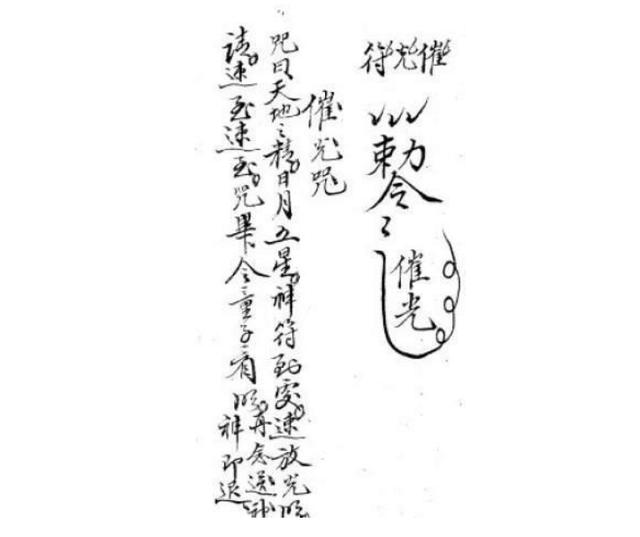 催光符
勅令
催光
催光咒
咒曰天地之精日月五星神符到處速放光明
請速至速至咒畢令童子看明再念送神
神即退